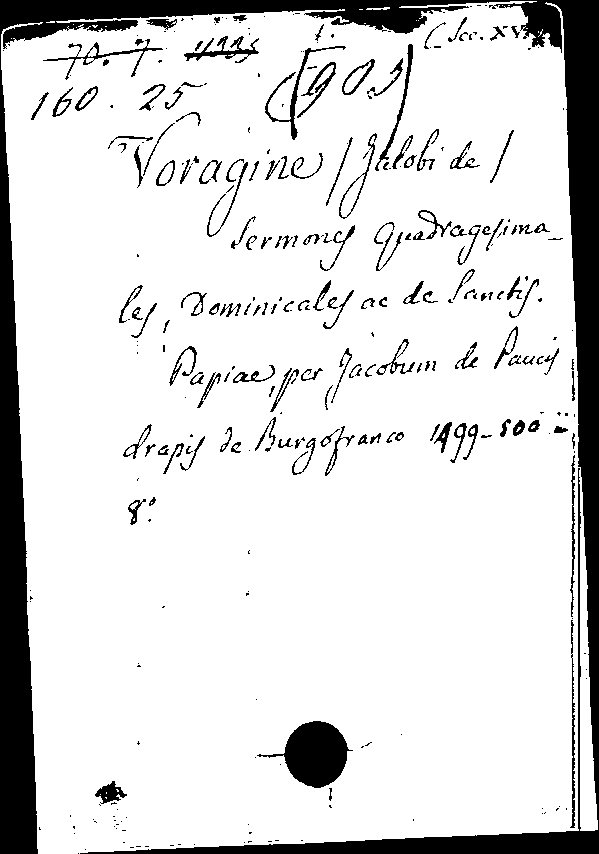 70. 7.
160. 25 (903)
Voragine / Jacobi de /
Sermones Quadragesima-
les, Dominicales ac de Sanctis.
Papiae, per Jacobum de Paucis
drapis de Burgofranco 1499-500
8°.